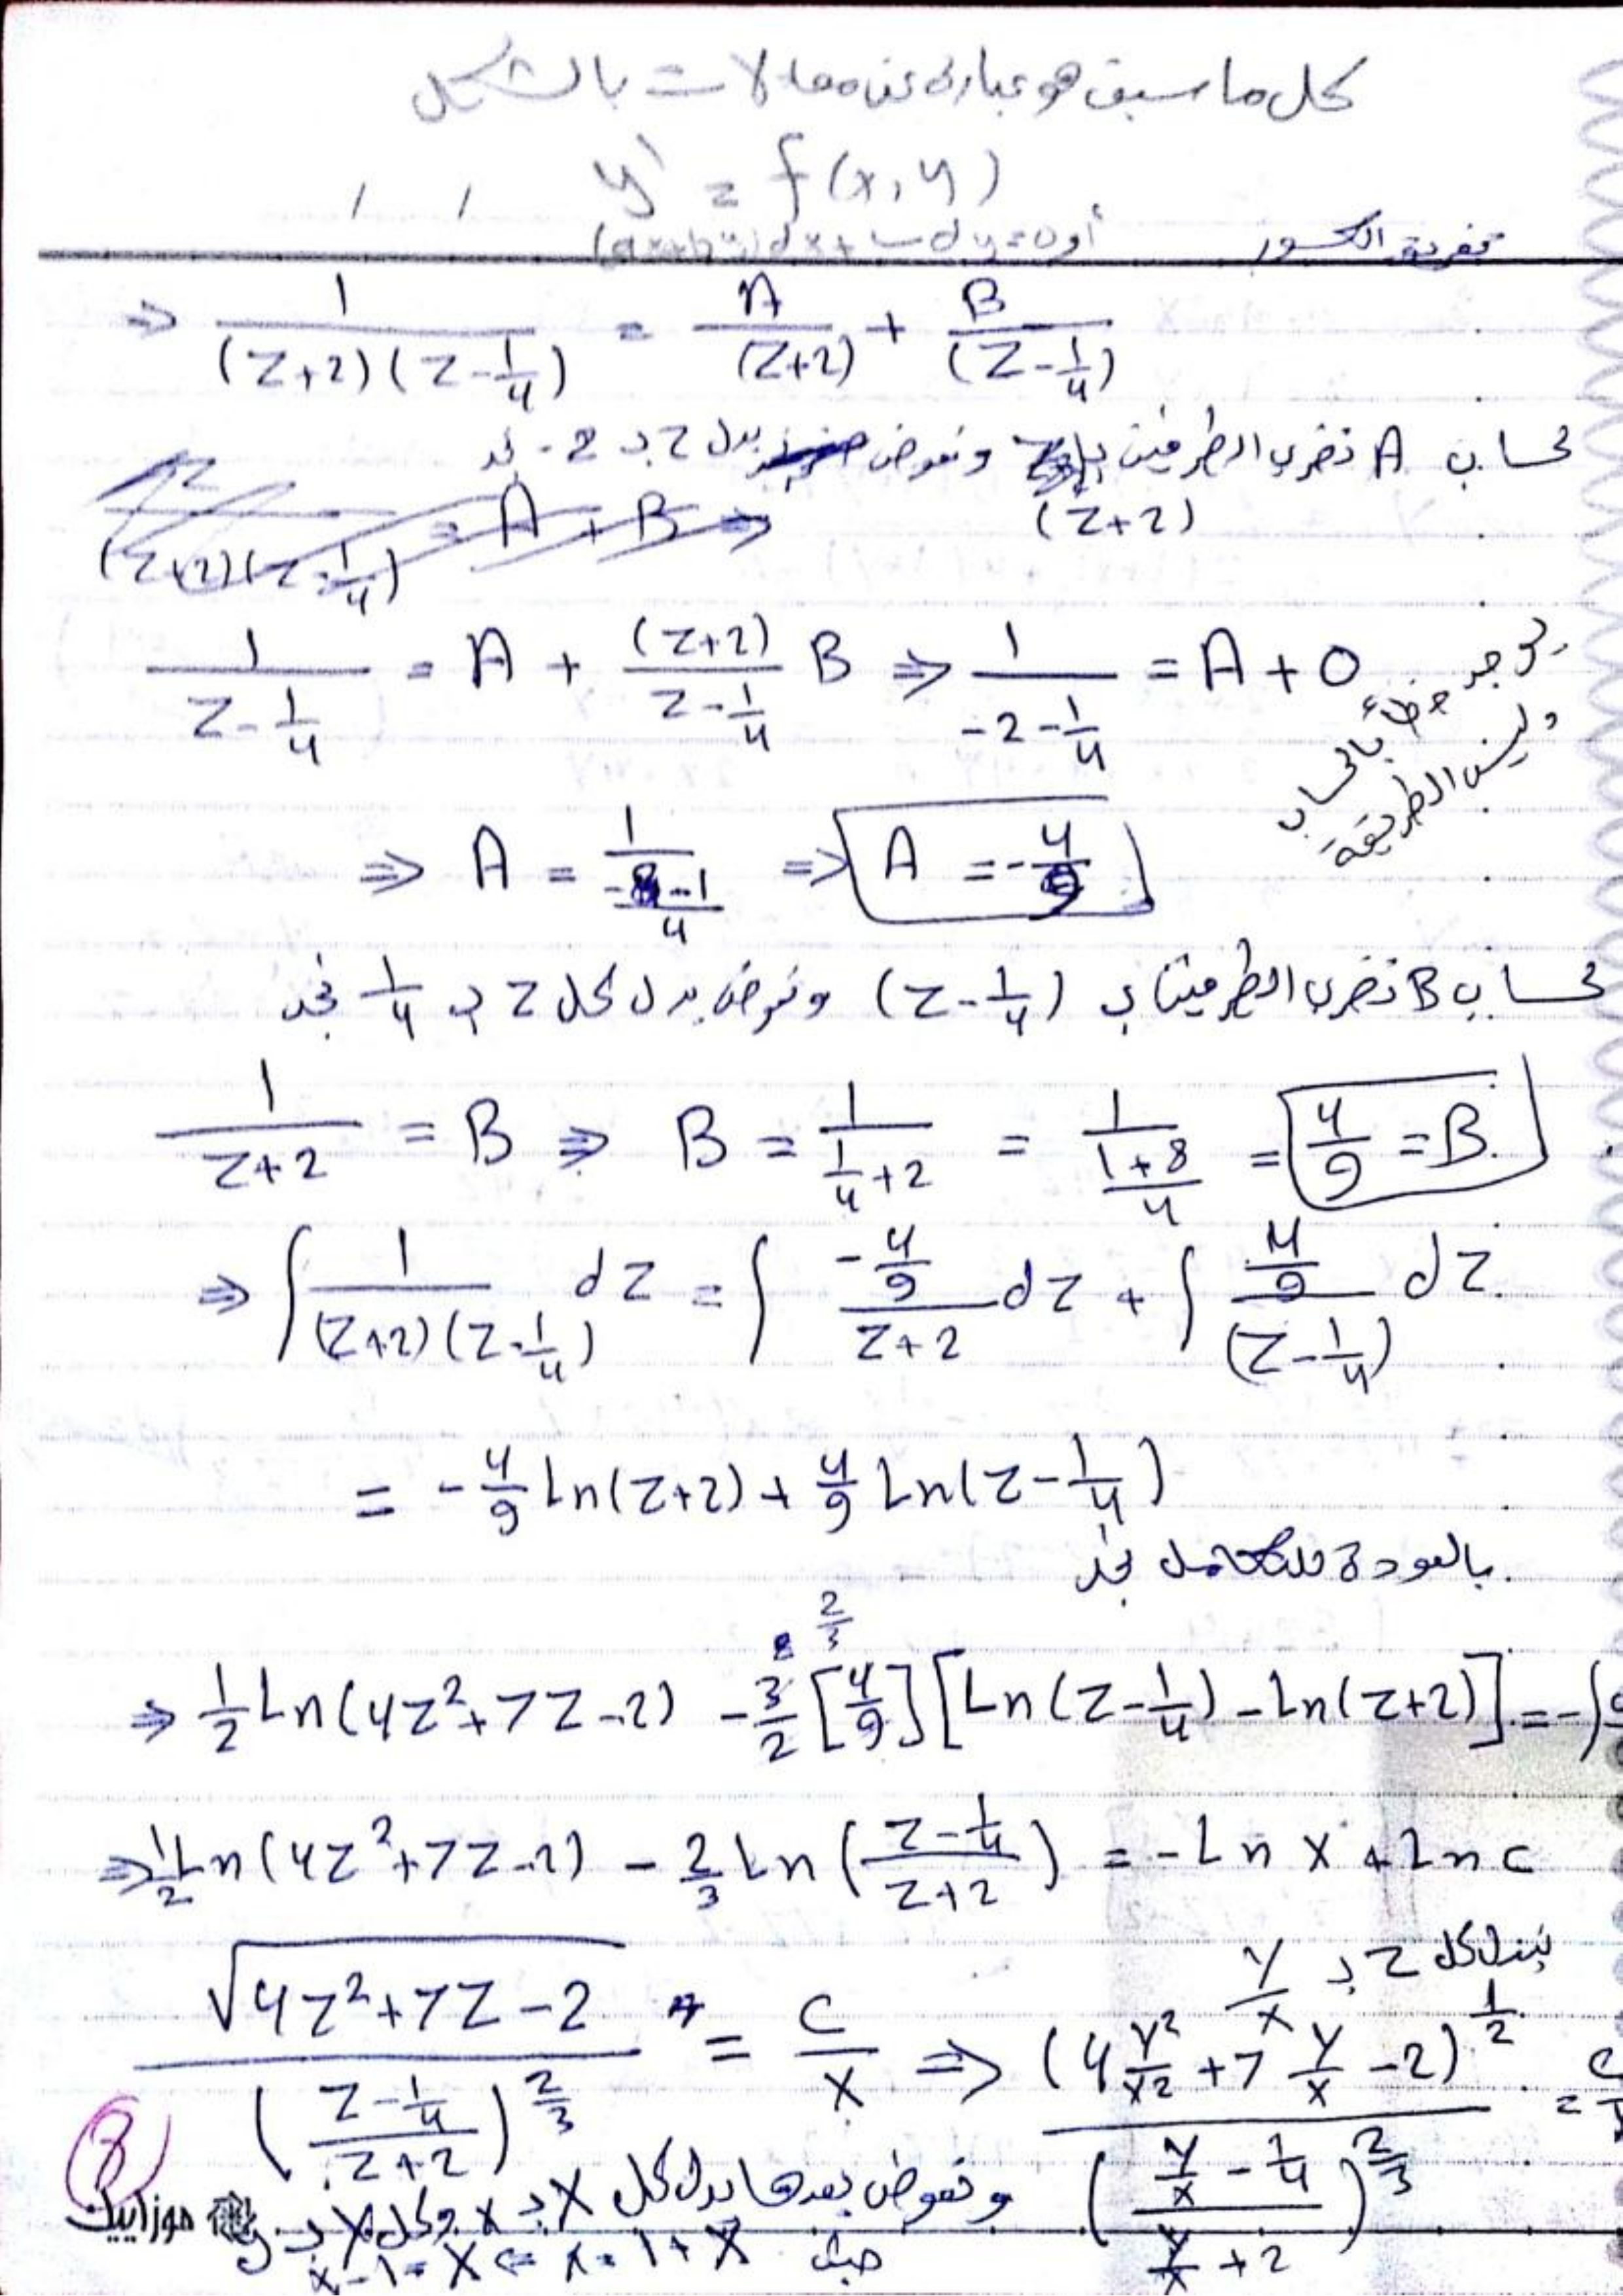 كل ما سبق هو عبارة عن معادلات بالشكل
y' = f(x,y)
أو
تفريق الكسور
⇒ 1/((Z+2)(Z-1/4)) = A/(Z+2) + B/(Z-1/4)
لحساب A نضرب الطرفين بـ (Z+2) ونعوض بدل Z بـ -2 نجد
1/(Z-1/4) = A + (Z+2)/(Z-1/4) B ⇒ 1/(-2-1/4) = A + 0
يوجد خطأ بالحساب
وليس الطريقة
⇒ A = 1/((-8-1)/4) ⇒ A = -4/9
لحساب B نضرب الطرفين بـ (Z-1/4) ونعوض بدل كل Z بـ 1/4 نجد
1/(Z+2) = B ⇒ B = 1/(1/4+2) = 1/((1+8)/4) = 4/9 = B
⇒ ∫ 1/((Z+2)(Z-1/4)) dZ = ∫ (-4/9)/(Z+2) dZ + ∫ (4/9)/(Z-1/4) dZ
= -4/9 Ln(Z+2) + 4/9 Ln(Z-1/4)
بالعودة للتكامل نجد
2/3
⇒ 1/2 Ln(4Z²+7Z-2) - 3/2 [4/9] [Ln(Z-1/4) - Ln(Z+2)] = -∫
⇒ 1/2 Ln(4Z²+7Z-2) - 2/3 Ln((Z-1/4)/(Z+2)) = -Ln X + Ln c
نبدل كل Z بـ Y/X
√(4Z²+7Z-2) / ((Z-1/4)/(Z+2))^(2/3) = C/X ⇒ (4 Y²/X² + 7 Y/X - 2)^(1/2) / ((Y/X - 1/4)/(Y/X + 2))^(2/3) = C
ونعوض بعدها بدل كل X بـ x وكل Y بـ y
حيث x = 1 + X ⇒ X = x - 1
8
موزاييك